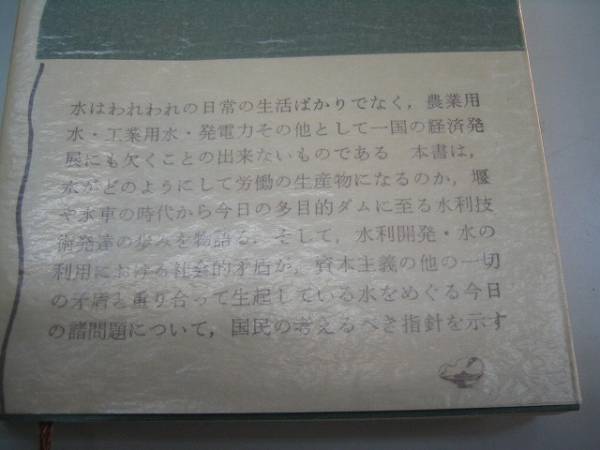 水はわれわれの日常の生活ばかりでなく，農業用
水・工業用水・発電力その他として一国の経済発
展にも欠くことの出来ないものである　本書は，
水がどのようにして労働の生産物になるのか，堰
や水車の時代から今日の多目的ダムに至る水利技
術発達の歩みを物語る．そして，水利開発・水の
利用における社会的矛盾が，資本主義の他の一切
の矛盾と重り合って生起している水をめぐる今日
の諸問題について，国民の考えるべき指針を示す